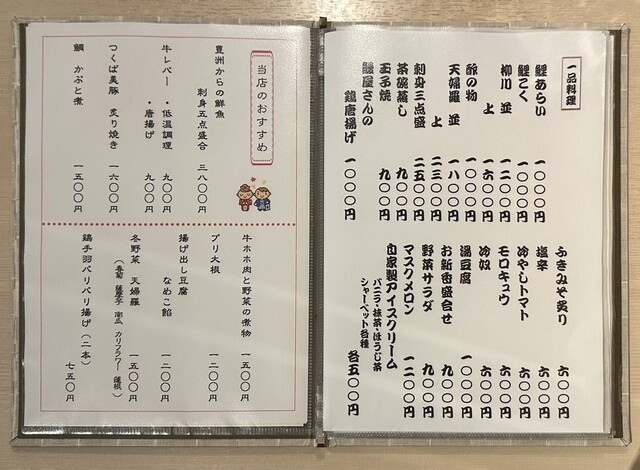 一品料理
鯉あらい 一〇〇〇円
鯉こく 一〇〇〇円
柳川 並 一二〇〇円
上 一六〇〇円
酢の物 一〇〇〇円
天婦羅 並 一八〇〇円
上 二三〇〇円
刺身三点盛 二五〇〇円
茶碗蒸し 九〇〇円
玉子焼 九〇〇円
鰻屋さんの
鶏唐揚げ 一〇〇〇円
ふきみそ炙り 六〇〇円
塩辛 六〇〇円
冷やしトマト 六〇〇円
モロキュウ 六〇〇円
冷奴 六〇〇円
湯豆腐 一〇〇〇円
お新香盛合せ 九〇〇円
野菜サラダ 九〇〇円
マスクメロン 一二〇〇円
自家製アイスクリーム
バニラ・抹茶・ほうじ茶
シャーベット各種 各五〇〇円
当店のおすすめ
豊洲からの鮮魚
刺身五点盛合 三八〇〇円
牛レバー ・低温調理 九〇〇円
・唐揚げ 九〇〇円
つくば美豚 炙り焼き 一六〇〇円
鯛 かぶと煮 一五〇〇円
牛ホホ肉と野菜の煮物 一五〇〇円
ブリ大根 一二〇〇円
揚げ出し豆腐
なめこ餡 一二〇〇円
冬野菜 天婦羅 一五〇〇円
（春菊 薩摩芋 南瓜 カリフラワー 蓮根）
鶏手羽バリバリ揚げ（二本） 七五〇円